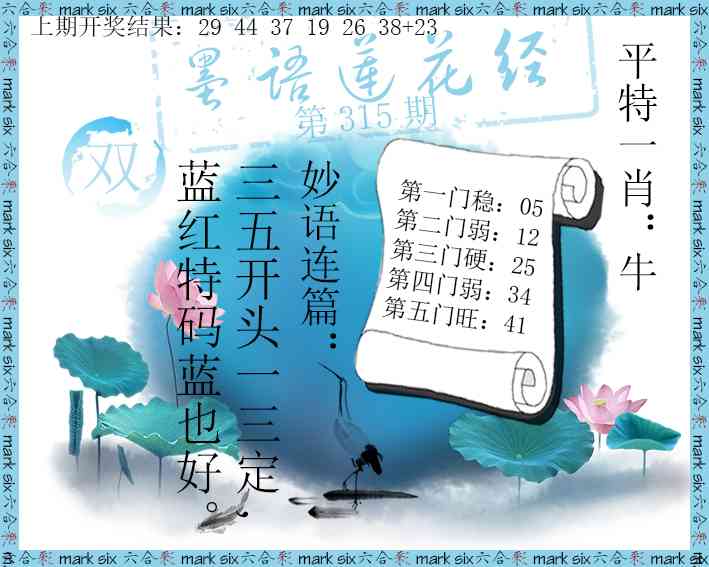 上期开奖结果：29 44 37 19 26 38+23
墨语莲花经
第315期
双
平特一肖：牛
第一门稳：05
第二门弱：12
第三门硬：25
第四门弱：34
第五门旺：41
妙语连篇：
三五开头一三定，
蓝红特码蓝也好。
mark six六合彩 mark six六合彩 mark six六合彩 mark six六合彩 mark six六合彩 mark six六合彩